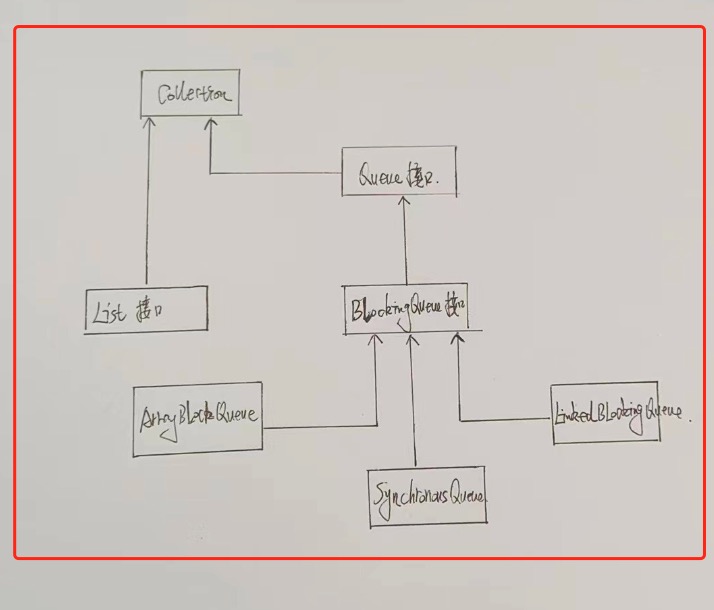 Collection
Queue 接口.
List 接口
BlockingQueue 接口
ArrayBlockQueue
LinkedBlockingQueue.
SynchronousQueue